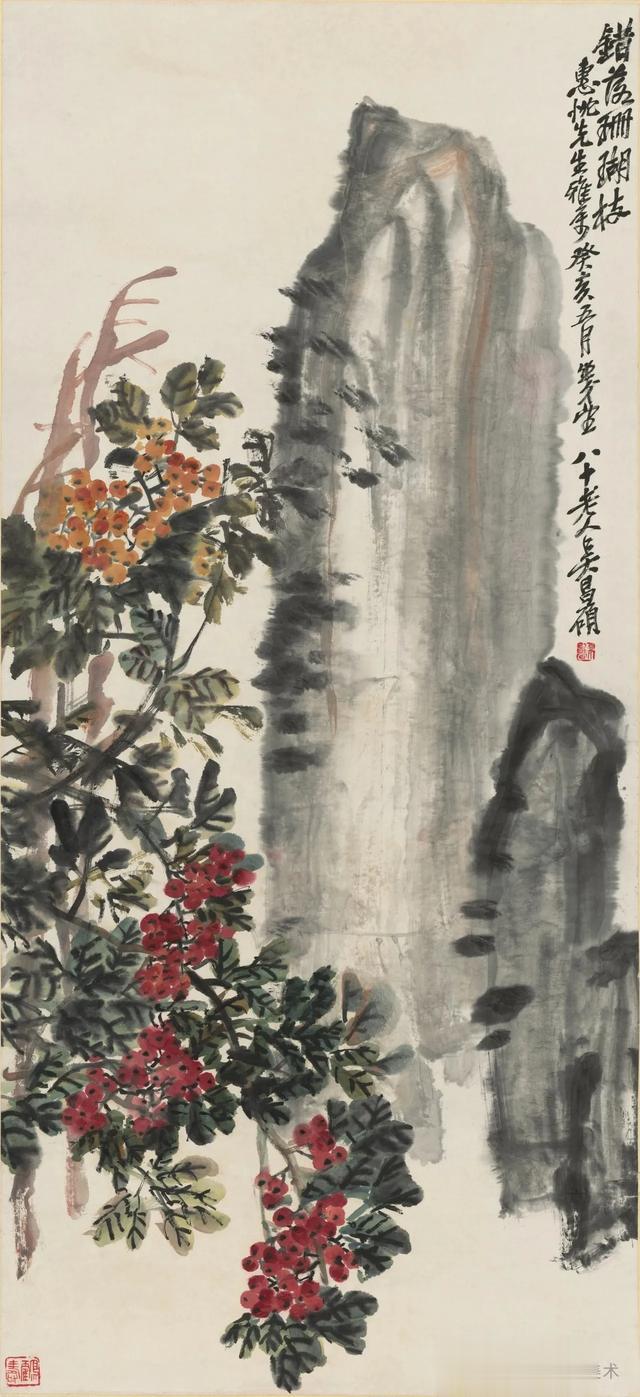 錯落珊瑚枝
惠忱先生雅 癸亥五月 八十老人吳昌碩
术